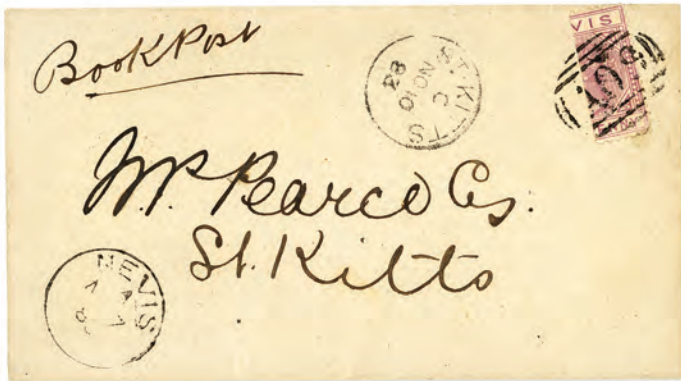 Book Post
VIS
ST. KITTS
C
NO 10
83
W.P. Pearce Es.
St. Kitts
NEVIS
A